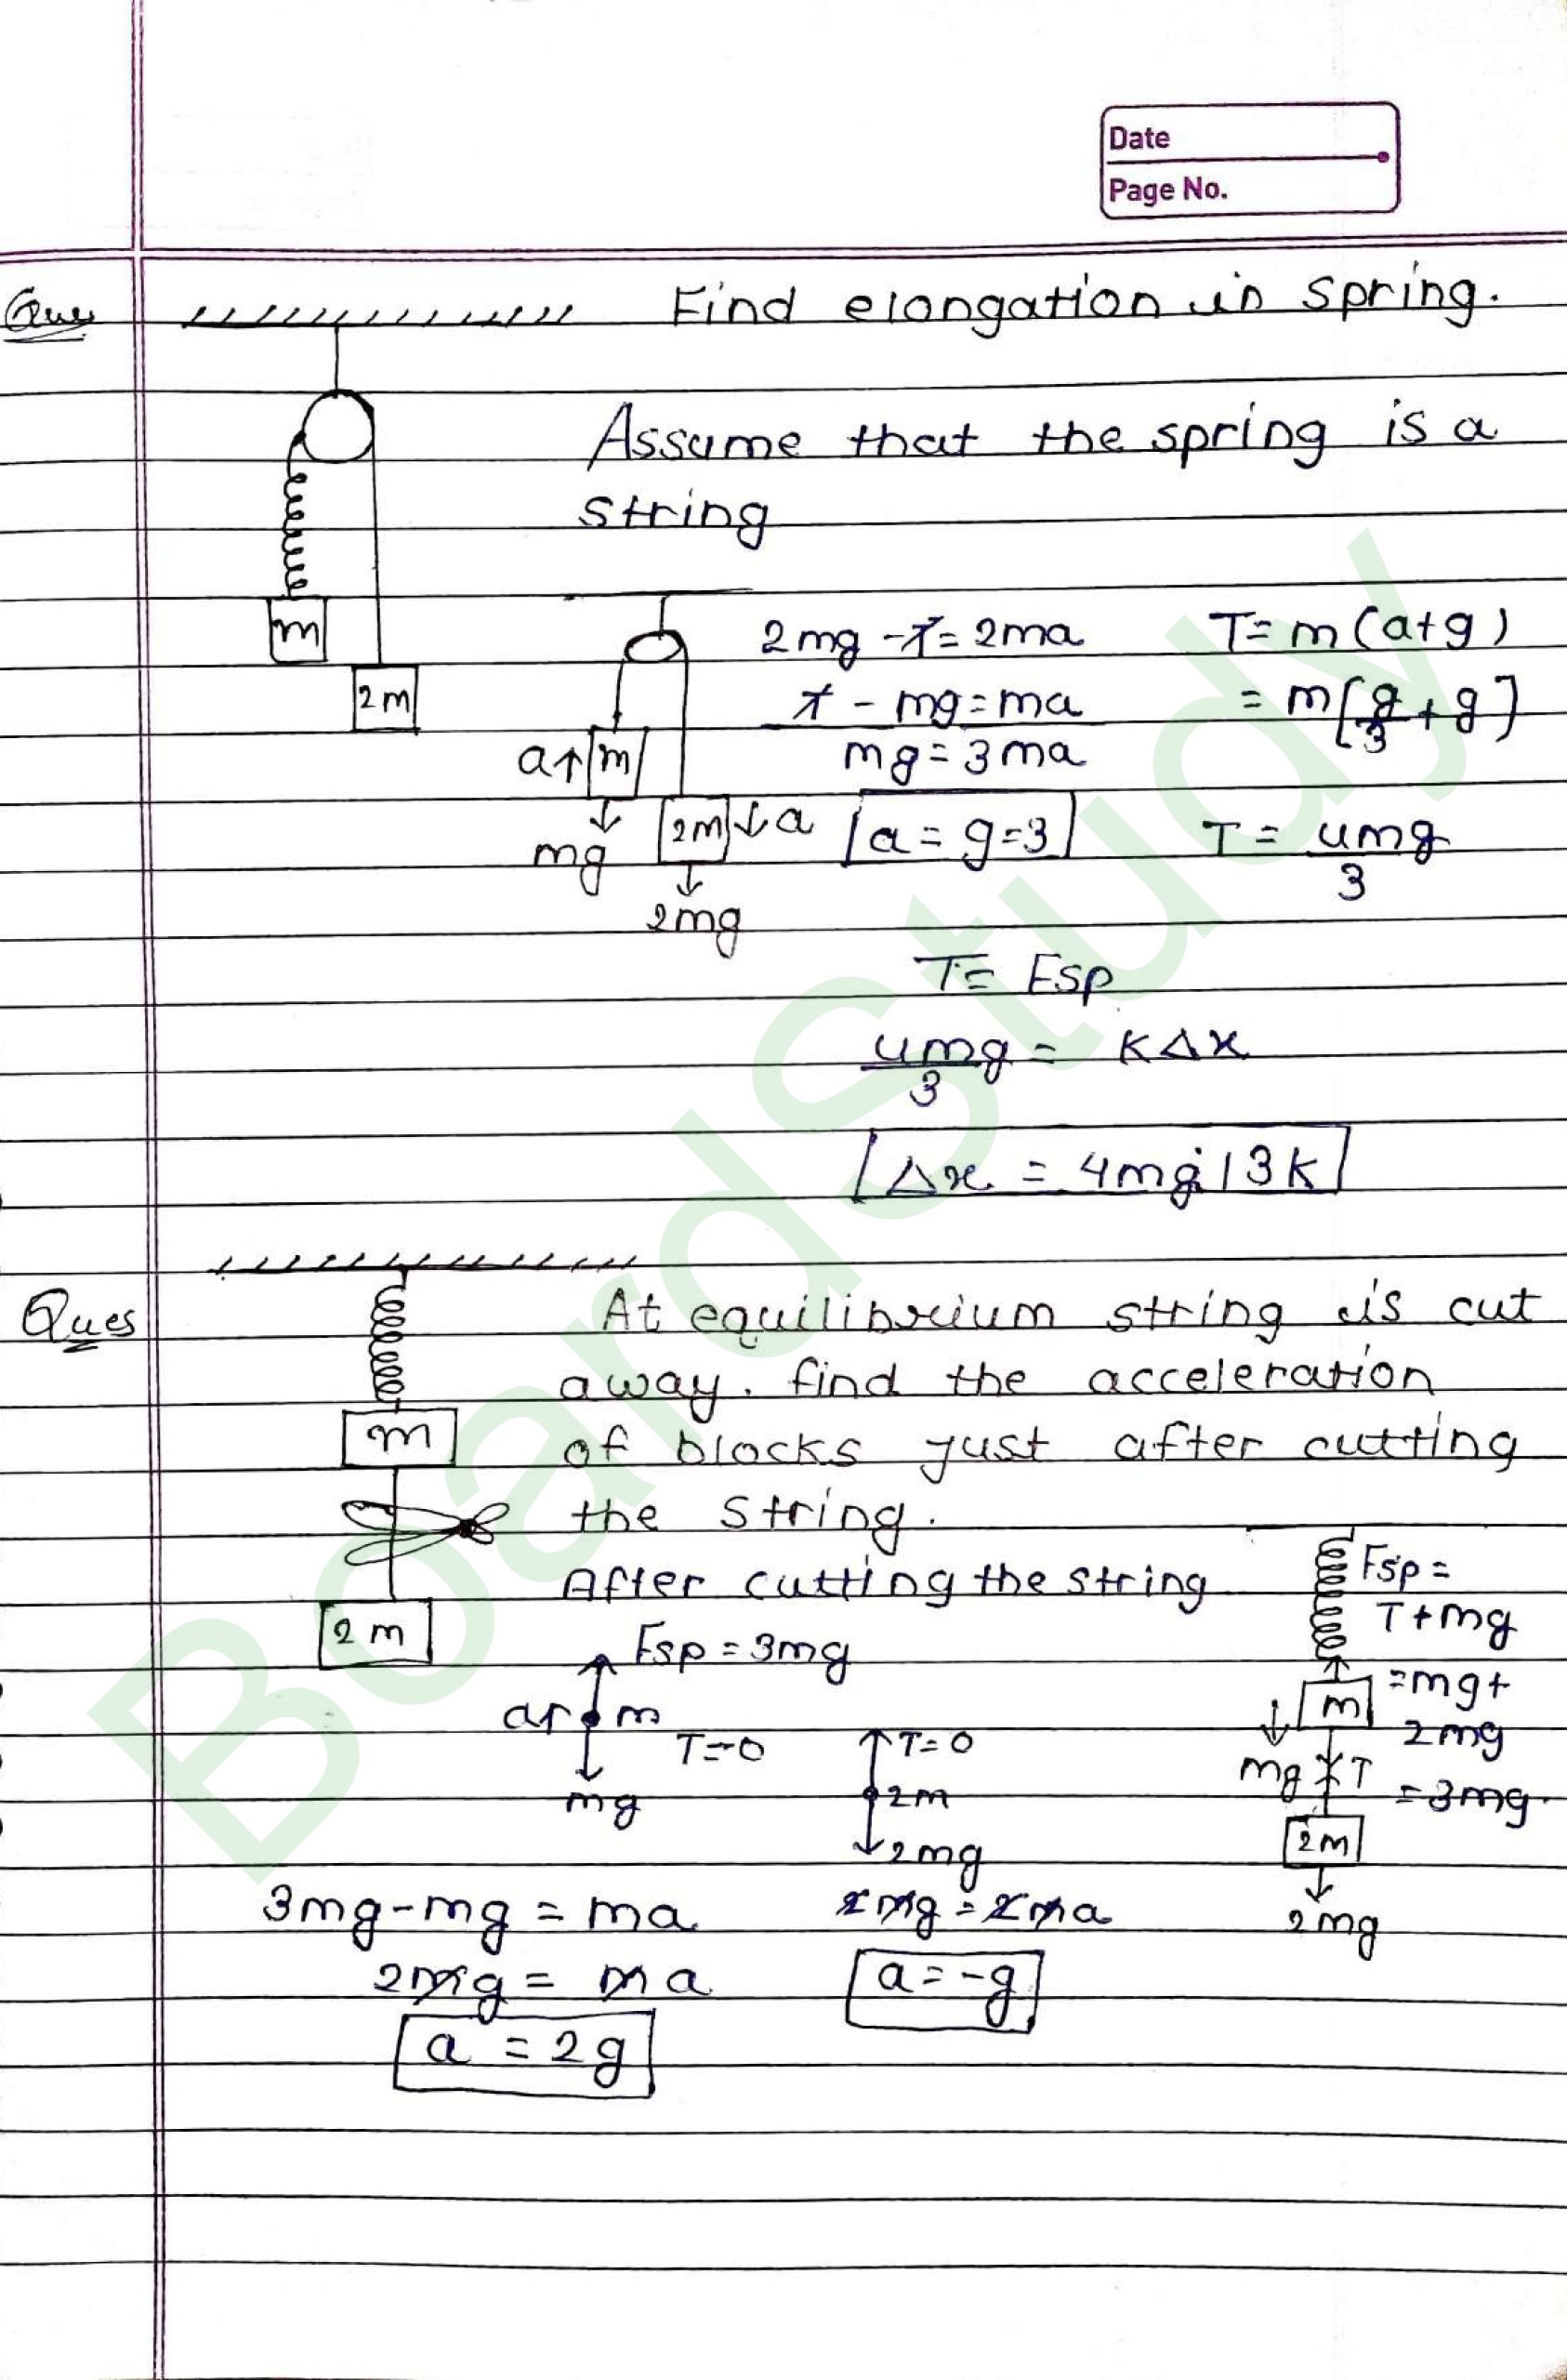 Date
Page No.
Ques
Find elongation in spring.
Assume that the spring is a
string
m
2m
2mg - T = 2ma
T - mg = ma
mg = 3ma
a = g=3
T = m(a+g)
= m[g/3 + g]
T = 4mg/3
a↑ m
mg
2m ↓a
2mg
T = Fsp
4mg/3 = KΔx
Δx = 4mg/3K
Ques
At equilibrium string is cut
away. find the acceleration
of blocks just after cutting
the string.
After cutting the string
m
2m
Fsp = 3mg
a↑ m
T=0
mg
T=0
2m
2mg
Fsp =
T+mg
=mg+
2mg
=3mg.
m
mg
T
2m
2mg
3mg-mg = ma
2mg = ma
a = 2g
2mg = 2ma
a = -g
BoardStudy